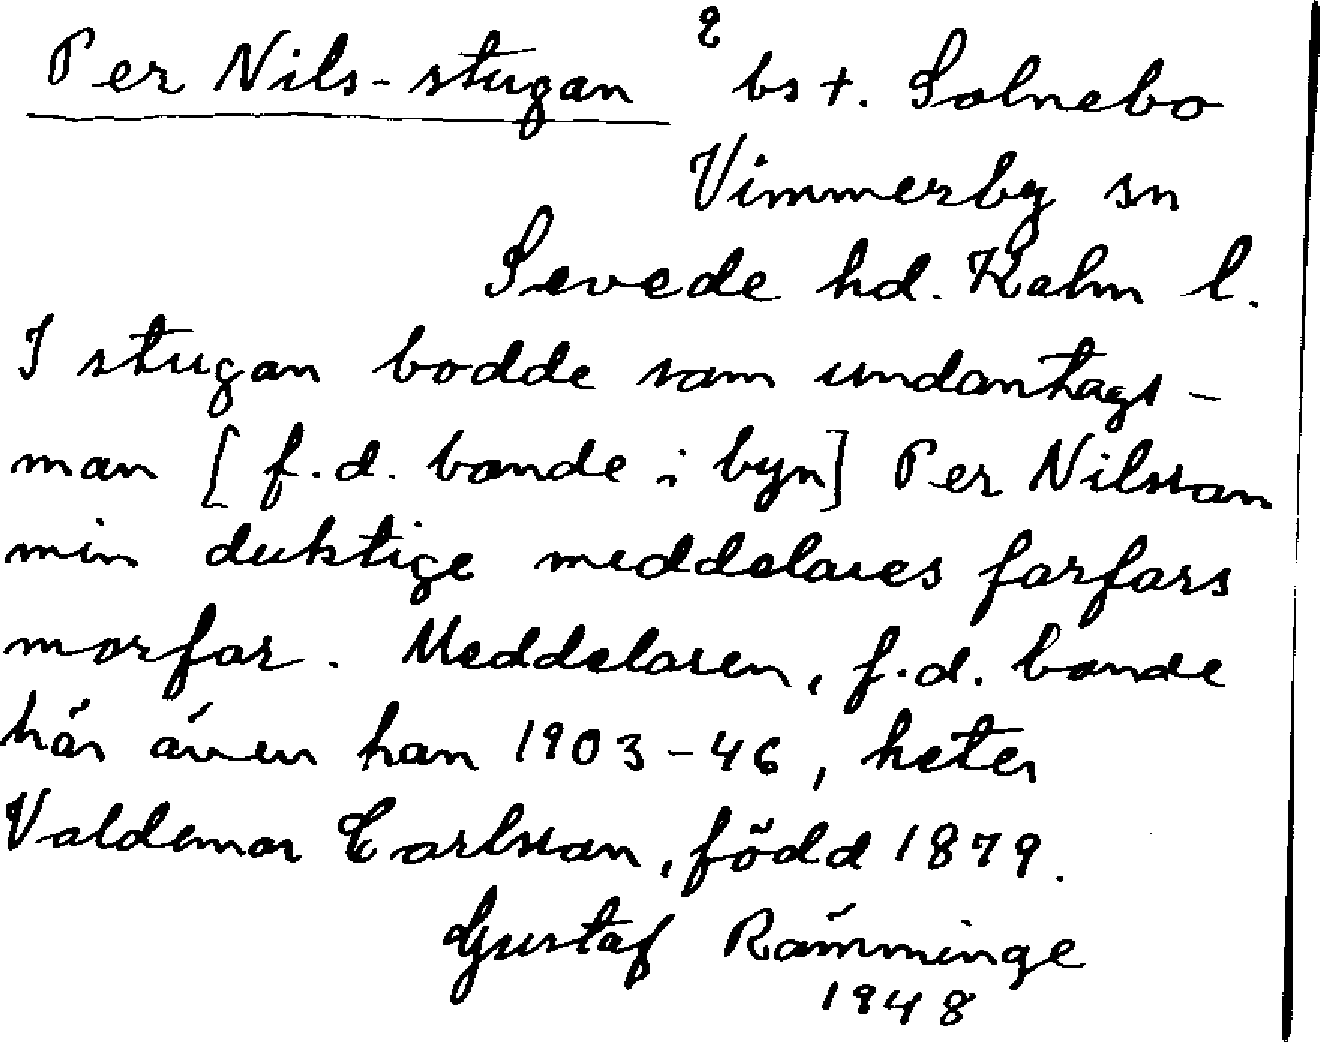 Per Nils-stugan bst. Solnebo
Vimmerby sn
Sevede hd. Kalm l.
I stugan bodde som undantags-
man [f.d. bonde i byn] Per Nilsson
min duktige meddelares farfars
morfar. Meddelaren, f.d. bonde
här även han 1903-46, heter
Valdemar Carlsson, född 1879.
Gustaf Rämminge
1948